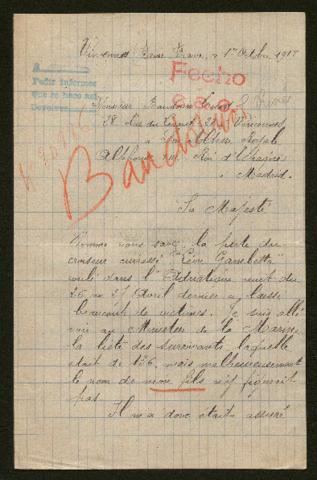 Vincennes Seine France, 1er Octobre 1915
Fecho
Pedir informes
que se hace así
Monsieur Baudouin
28 Rue du 2 à Vincennes
à Son Altesse Royale
Alphonse XIII, Roi d'Espagne
à Madrid.
Baudouin
Sa Majesté
Comme vous savez la perte du
croiseur cuirassé "Léon Gambetta"
coulé dans l'Adriatique nuit du
26 au 27 Avril dernier a laissé
beaucoup de victimes. Je suis allé
voir au Ministère de la Marine
la liste des survivants laquelle
était de 136, mais malheureusement
le nom de mon fils n'y figurait
pas.
Il m'a donc était assuré